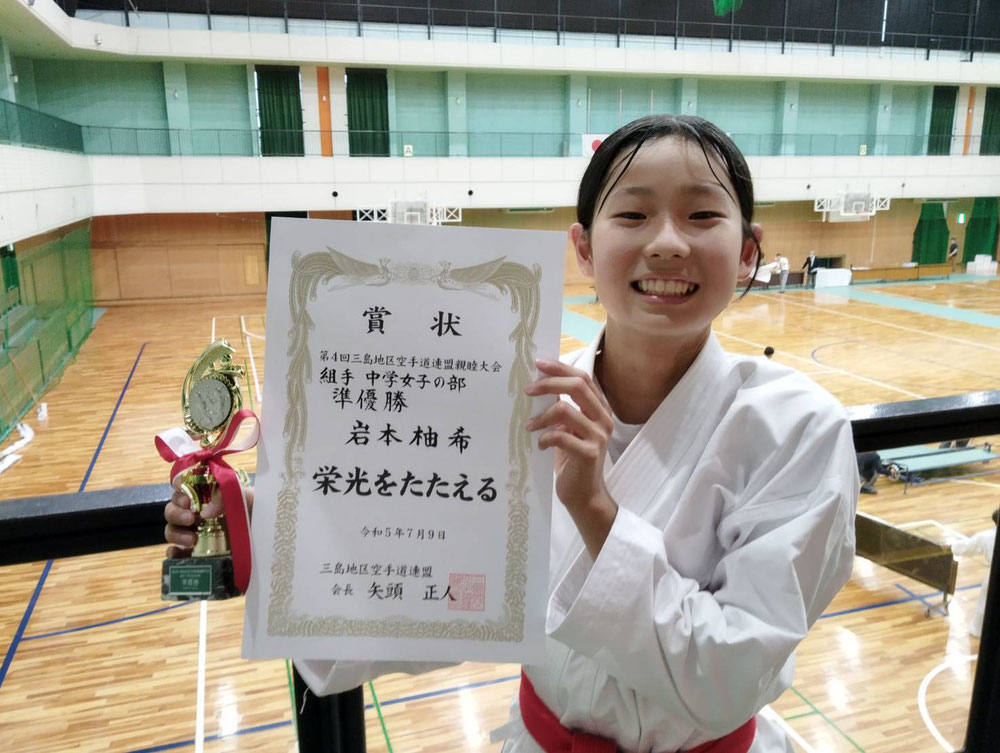 賞 状
第4回三島地区空手道連盟親睦大会
組手 中学女子の部
準優勝
岩本柚希
栄光をたたえる
令和5年7月9日
三島地区空手道連盟
会長 矢頭 正人
準優勝